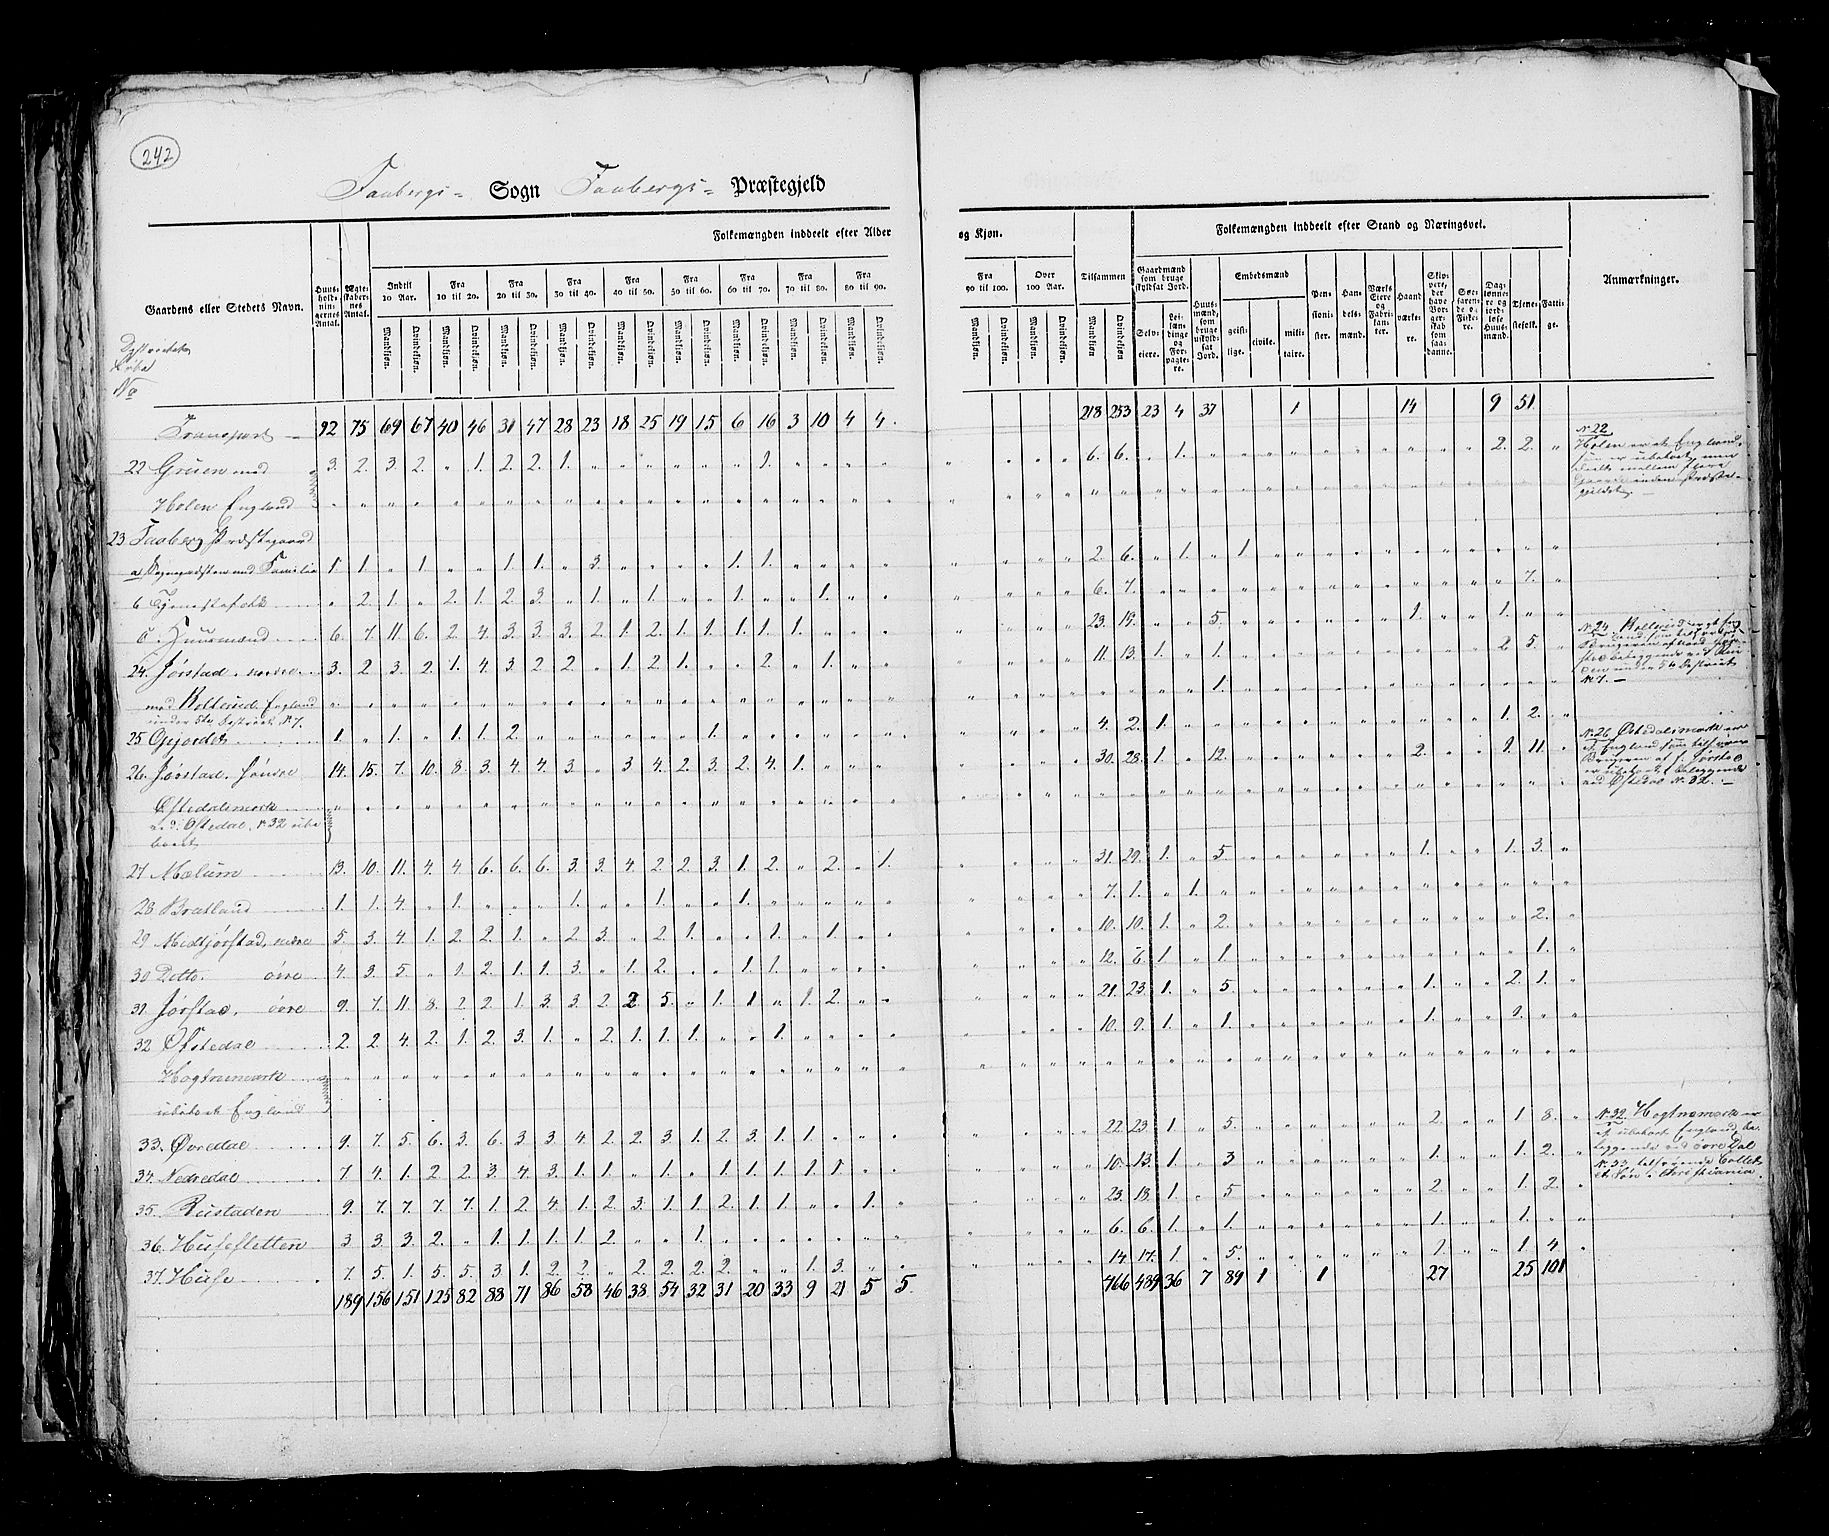 242
Faabergs- Sogn Faabergs- Præstegjeld
Folkemængden inddeelt efter Alder og Kjøn. Tilsammen Folkemængden inddeelt efter Stand og Næringsvei. Anmærkninger.
Gaardens eller Stedets Navn. Huusholdningernes Antal. Ægteskabernes Antal.
Indtil 10 Aar. Fra 10 til 20. Fra 20 til 30. Fra 30 til 40. Fra 40 til 50. Fra 50 til 60. Fra 60 til 70. Fra 70 til 80. Fra 80 til 90. Fra 90 til 100. Over 100 Aar.
Mandkjøn. Qvindekjøn.
Gaardmænd som bruge skyldsat Jord. Selveiere. Leilændinge og Forpagtere. Huusmænd, som bruge uskyldsat Jord. Embedsmænd geistlige. civile. militaire. Pensionister. Handelsmænd. Værks Eiere og Fabrikanter. Haandværkere. Skippere, der have Borgerskab som saadanne. Søefarende og Fiskere. Daglønnere og jordløse Huusmænd. Tjenestefolk. Fattige.
No
Transport 92 75 69 67 40 46 31 47 28 23 18 25 19 15 6 16 3 10 4 4 218 253 23 4 37 1 14 9 51
22 Gruen med 3. 2. 3. 2. " 1. 2. 2. 1. " 1. 6. 6. " 1. 2. 2.
Holen England
23 Faaberg Præstegaard
a Sognepræsten med Familie 1. 1. " 1. " " 1. 1. " 3. 1. 1. 2. 6. " 1. " 1.
b Tjenestefolk " 2. 1. " 2. 1. 2. 3. " 1. " 1. " " 1. " " 1. 6. 7. 7.
c. Huusmænd 6. 7. 11. 6. 2. 4. 3. 3. 3. 2. 1. 2. 1. 1. 1. 1. 1. 23. 19. 5. 1. 1.
24. Jørstad, nedre 3. 2. 3. 2. 1. 4. 3. 2. 2. " 1. 2. 1. " " 2. " 1. 11. 13. 1. " 1. 2. 5.
med England 1.
under 5te District N. 7.
25 Gjørdet 1. " 1. " 1. 1. 2. 1. 4. 2. 1. 1. 2.
26. Jørstad, søndre 14. 15. 7. 10. 8. 3. 4. 4. 3. " 3 4. 2. 3. 2. 4. 1. 30. 28. 1. " 12. 2. 9. 11.
Østedalsmark
ved Østedal, N. 32 ube
boet
27 Mælum 13. 10. 11. 4. 4. 6. 6. 6. 3. 3. 4. 2. 2. 3. 1. 2. " 2. " 1. 31. 29. 1. " 5. 1. 1. 3.
28 Brætland 1. 1. 4. " 1. 1. 1. 1. 7. 1. " 1.
29 Midtjørstad, nedre 5. 3. 4. 1. 2. 2. 1. " 2. 3. " 2. 1. " " 1. " 1. 10. 10. 1. " 2. 2.
30 Ditto. øvre 4. 3. 5. " 1. 2. 1. 1. 3. " 1. 2. " " 1. 1. 12. 6. 1. " 1. 1.
31 Jørstad, øvre 9. 7. 11. 8. 2. 2. 1. 3. 3. 2. 2 5. " 1. 1. " 1. 2. 21. 23. 1. " 5. 1. 2. 1.
32 Østedal 2. 2. 4. 2. 1. 2. 3. 1. " 2. 1. 1. 1. " " 1. 10. 9. 1. " 1. 1. 9.
Hogtnemark
ubeboet England
33. Øvredal 9. 7. 5. 6. 3. 6. 3. 3. 4. 2. 2. 3. 1. 2. 3. 1. 1. 22. 23. 1. " 5. 2. 1 8.
34. Nedredal 7. 4. 1. 2. 2. 3. 4. 3. 1. 1. " 1. " 1. 1. 1. 1. 1. 10. 13. 1. " 3. 1. 1. 2.
35. Rustaden 9. 7. 7. 7. 7. 1. 2. 4. 1. 2. 3. 1. 1. 2. 1. 1. " " 1. 23. 18. 1. " 5. 2. 1. 2.
36. Husesletten 3. 3. 3. 2. " 1. 1. 1. 1. 2. " " 1. 6. 6. 1. " 1. 1. 1.
37. Huse 7. 5. 1. 5. 5. 3. 1. 2. 2. " 2. 2. 2. 2. " " 1. 3. 14. 17. 1. " 5. 1. 1. 4.
189 156 151 125 82 88 71 86 58 46 38 54 32 31 20 33 9 21 5 5. 466 489 36 7 89 1 1 27 25 101
N. 22
Holen er et England
N. 24.
N. 7.
N. 26 Østedalsmark er
et England som tilhører
Brugeren af s. Jørstad
er ubeboet, beliggende
ved Østedal N. 32.
N. 32. Hogtnemark er
et ubeboet England, be-
liggende ved øvre Dal
N. 33, tilhørende Collet
et Søn i Christiania